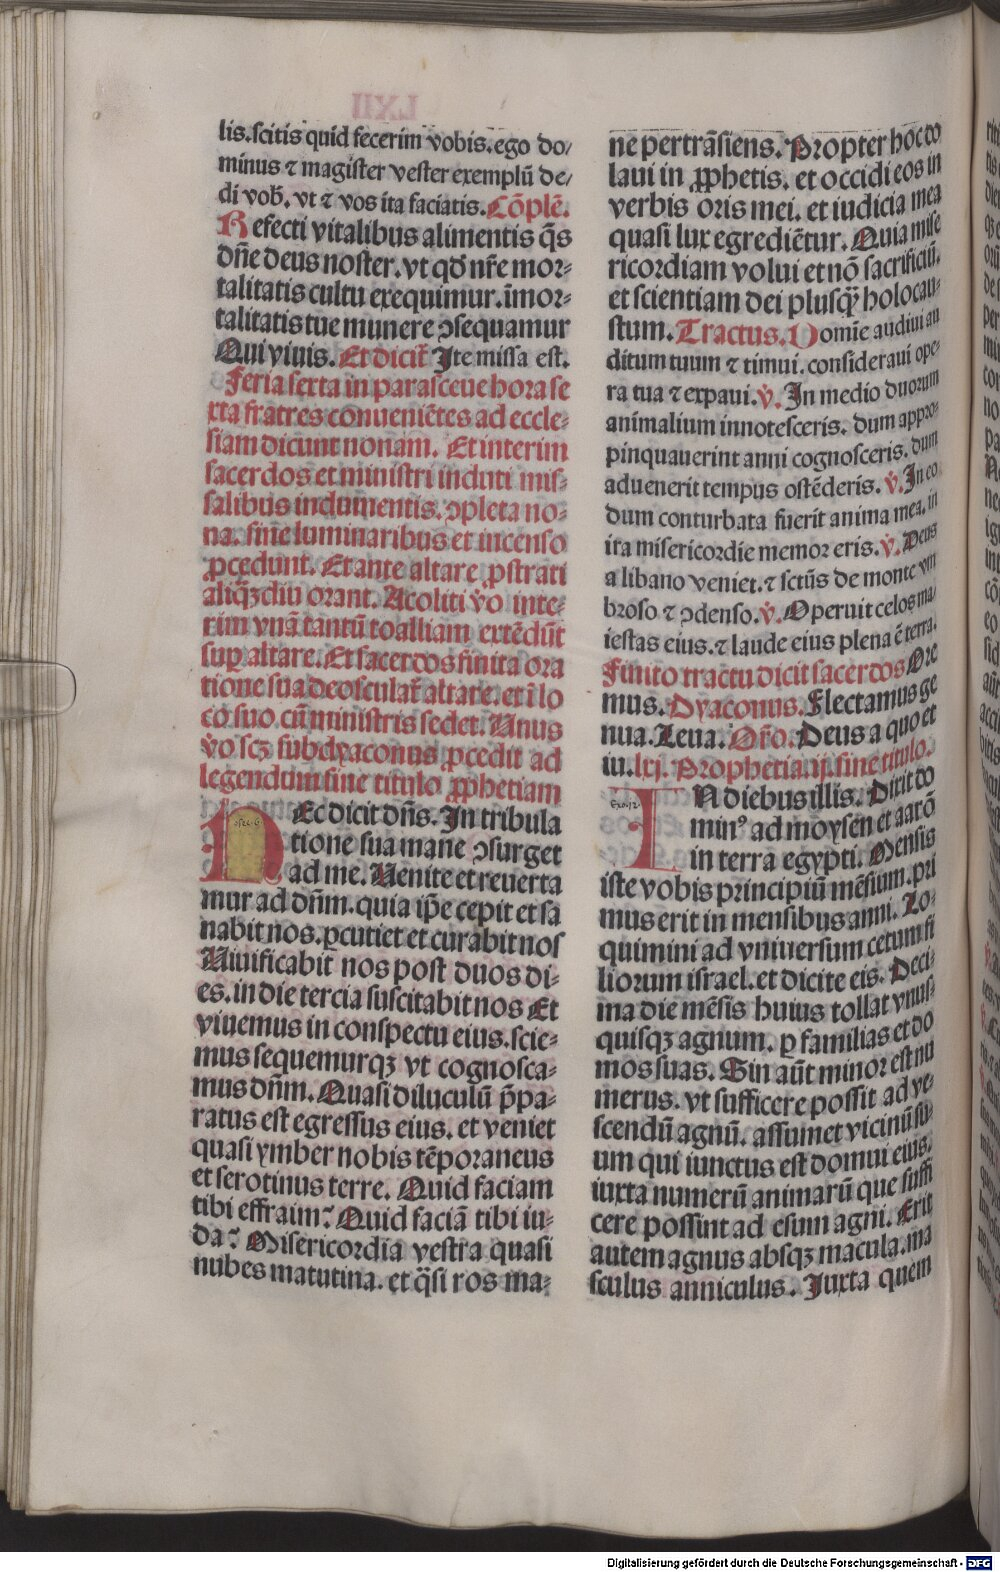 lis.scitis quid fecerim vobis.ego do/
minus ⁊ magister vester exemplū de/
di vob̄. vt ⁊ vos ita faciatis. Cōplē.
Refecti vitalibus alimentis q̄s
dn̄e deus noster. vt qd̄ nr̄e mor⸗
talitatis cultu exequimur. īmor⸗
talitatis tue munere ꝯsequamur
Qui viuis. Et dicit̄ Ite missa est.
Feria sexta in parasceue hora se
xta fratres conueniētes ad eccle⸗
siam dicunt nonam. Et interim
sacerdos et ministri induti mis⸗
salibus indumentis. ꝯpleta no⸗
na. sine luminaribus et incenso
ꝓcedunt. Et ante altare ꝓstrati
aliqꝫdiu orant. Acoliti v̄o inte⸗
rim vnā tantū toalliam extēdūt
sup̄ altare. Et sacerdos finita ora
tione sua deosculat̄ altare. et ī lo
co suo cū ministris sedet. Unus
v̄o scꝫ subdyaconus ꝓcedit ad
legendum sine titulo ꝓphetiam
osee.6.
HEc dicit dn̄s. In tribula
tione sua mane ꝯsurget
ad me. Uenite et reuerta
mur ad dn̄m. quia ip̄e cepit et sa
nabit nos. ꝑcutiet et curabit nos
Uiuificabit nos post duos di⸗
es. in die tercia suscitabit nos Et
viuemus in conspectu eius. scie⸗
mus sequemurqꝫ vt cognosca⸗
mus dn̄m. Quasi diluculū p̄pa⸗
ratus est egressus eius. et veniet
quasi ymber nobis tēporaneus
et serotinus terre. Quid faciam
tibi effraim? Quid faciā tibi iu⸗
da? Misericordia vestra quasi
nubes matutina. et q̄si ros ma⸗
ne pertrāsiens. Propter hoc do
laui in ꝓphetis. et occidi eos in
verbis oris mei. et iudicia mea
quasi lux egrediētur. Quia mise
ricordiam volui et nō sacrificiū.
et scientiam dei plusqꝫ̄ holocau⸗
stum. Tractus. Domīe audiui au
ditum tuum ⁊ timui. consideraui ope⸗
ra tua ⁊ expaui. v̄. In medio duorum
animalium innotesceris. dum appro⸗
pinquauerint anni cognosceris. dum
aduenerit tempus ostēderis. v̄. In eo
dum conturbata fuerit anima mea. in
ira misericordie memor eris. v̄. Deus
a libano veniet. ⁊ sctūs de monte vm
broso ⁊ ꝯdenso. v̄. Operuit celos ma/
iestas eius. ⁊ laude eius plena ē terra.
Finito tractu dicit sacerdos Ore
mus. Dyaconus. Flectamus ge
nua. Leua. Or̄o. Deus a quo et
iu. lxj. Prophetia. ij. sine titulo.
Exo.12.
IN diebus illis. Dixit do
min⁹ ad moysen et aarō
in terra egypti. Mensis
iste vobis principiū mēsium. pri
mus erit in mensibus anni. Lo⸗
quimini ad vniuersum cetum fi
liorum israel. et dicite eis. Deci⸗
ma die mēsis huius tollat vnus⸗
quisqꝫ agnum. ꝑ familias et do
mos suas. Sin aūt minor est nu
merus. vt sufficere possit ad ve⸗
scendū agnū. assumet vicinū su⸗
um qui iunctus est domui eius.
iuxta numerū animarū que suffi
cere possint ad esum agni. Erit
autem agnus absqꝫ macula. ma
sculus anniculus. Iuxta quem
Digitalisierung gefördert durch die Deutsche Forschungsgemeinschaft - DFG